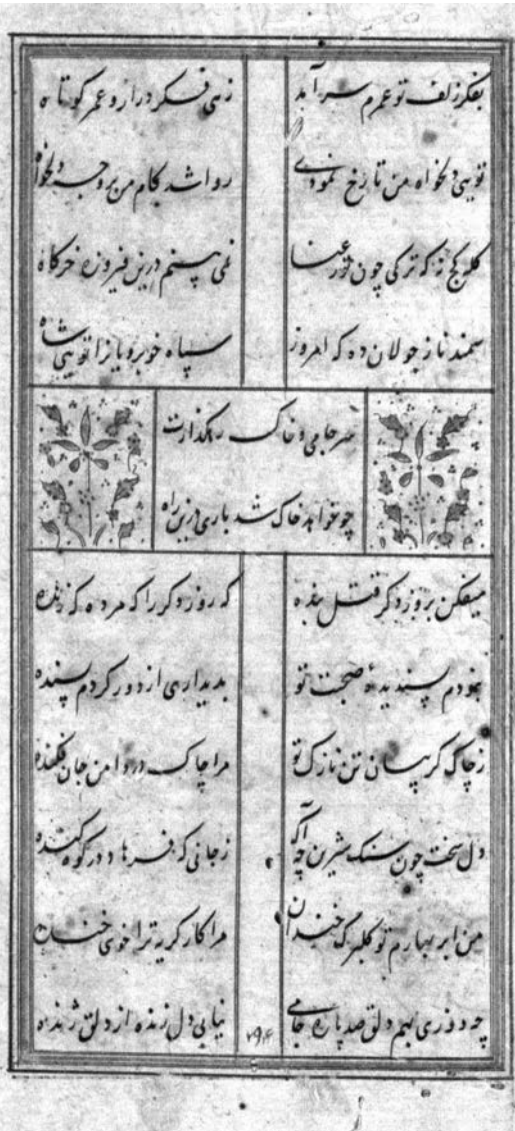 بفکر زلف تو عمرم سر آمد
زهی فکر دراز و عمر کوتاه
تویی دلخواه من تا رخ نمودی
روا شد کام من بر وجه دلخواه
کله کج نه که ترکی چون تو رعنا
نمی بینم درین فیروزه خرگاه
سمند ناز جولان ده که امروز
سپاه خوبرویان را تویی شاه
سر جامی و خاک رهگذارت
چو خواهد خاک شد باری درین راه
میفکن بروز دگر قتل بنده
که روز دگر را که مرده که زنده
نبودم پسندیدهٔ صحبت تو
بدیداری از دور کردم پسنده
ز چاک گریبان تن نازک تو
مرا چاک در دامن جان فکنده
دل سخت چون سنک شیرین چه آگه
ز جانی که فرهاد در کوه کنده
من ابر بهارم تو گلبرک خندان
مرا کار گریه ترا خوی خنده
چه دوزی بهم دلق صد پاره جامی
نیابی دل زنده از دلق ژنده